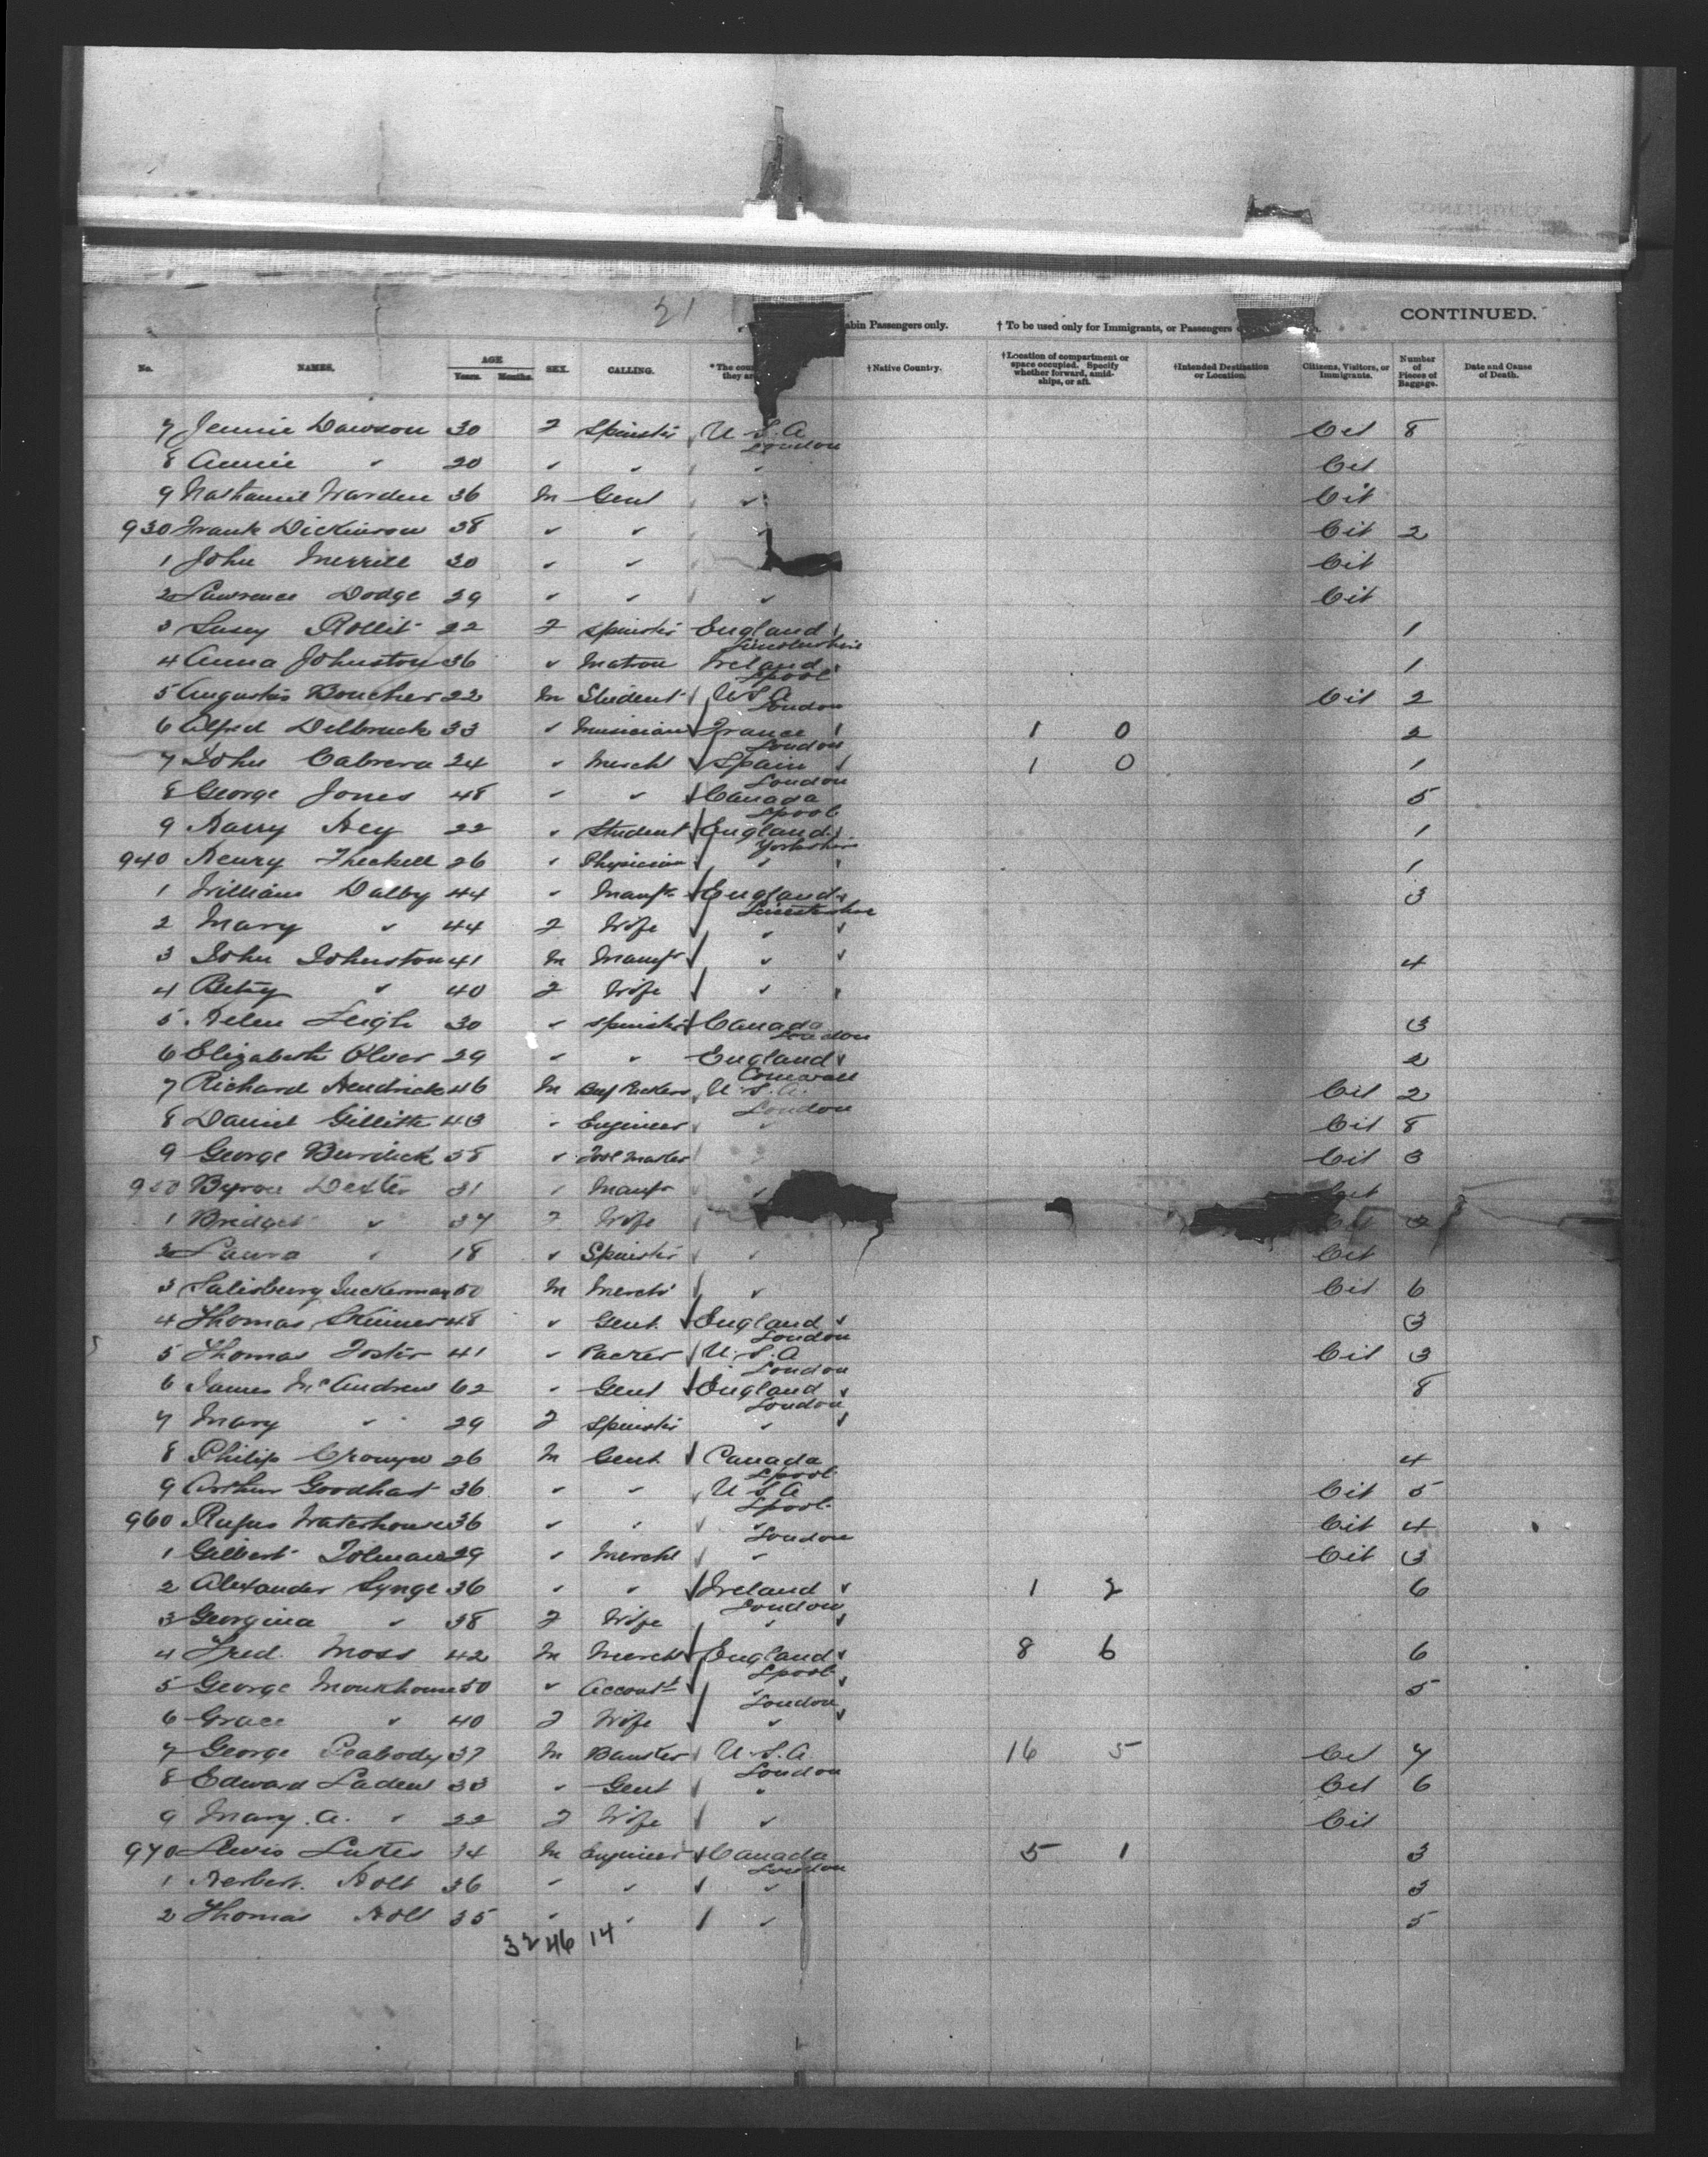 21
CONTINUED.
abin Passengers only. † To be used only for Immigrants, or Passengers
No. NAMES. AGE Years. Months. SEX. CALLING. * The cou they ar † Native Country. † Location of compartment or space occupied. Specify whether forward, amidships, or aft. † Intended Destination or Location. Citizens, Visitors, or Immigrants. Number of Pieces of Baggage. Date and Cause of Death.
7 Jennie Dawson 30 F Spinster U.S.A Cit 8
London
8 Annie " 20 " " " Cit
9 Nathaniel Warden 36 M Gent " Cit
930 Frank Dickinson 38 " " Cit 2
1 John Merrill 30 " " Cit
2 Lawrence Dodge 29 " " " Cit
3 Lucy Rollit 22 F Spinster England 1
Lincolnshire
4 Anna Johnston 36 " Matron Ireland 1
Lpool
5 Augustus Boucher 22 M Student USA Cit 2
London
6 Alfred Delbruck 33 " Musician France 1 0 2
London
7 John Cabrera 24 " Mercht Spain 1 0 1
London
8 George Jones 48 " " Canada 5
Lpool
9 Harry Hey 22 " Student England 1
Yorkshire
940 Henry Theckell 26 " Physician " 1
1 William Dalby 44 " Manfr England 3
Leicestershire
2 Mary " 44 F Wife "
3 John Johnston 41 M Manfr " 4
4 Betsy " 40 F Wife "
5 Helen Leigh 30 " Spinster Canada 3
London
6 Elizabeth Olver 29 " " England 2
Cornwall
7 Richard Hendrick 46 M Beef Packers U.S.A. Cit 2
London
8 Daniel Gillitte 43 " Engineer " Cit 8
9 George Burdick 58 " Master Cit 3
950 Byron Dexter 31 " Manfr " Cit
1 Bridget " 37 F Wife
2 Laura " 18 " Spinster " Cit
3 Salisbury Tuckerman 50 M Mercht " Cit 6
4 Thomas Skinner 48 " Gent. England 3
London
5 Thomas Foster 41 " Packer U.S.A Cit 3
London
6 James McAndrew 62 " Gent England 8
London
7 Mary " 29 F Spinster "
8 Philip Cronyn 26 M Gent Canada 4
Lpool
9 Arthur Goodhart 36 " " U S A Cit 5
Lpool
960 Rufus Waterhouse 36 " " " Cit 4
London
1 Gilbert Tolman 29 " Mercht " Cit 3
2 Alexander Synge 36 " " Ireland 1 2 6
London
3 Georgina " 38 F Wife "
4 Fred. Moss 42 M Mercht England 8 6 6
Lpool
5 George Monkhouse 50 " Accountt " 5
London
6 Grace " 40 F Wife "
7 George Peabody 37 M Banker U.S.A. 16 5 Cit 7
London
8 Edward Laden 33 " Gent " Cit 6
9 Mary A. " 22 F Wife " Cit
970 Lewis Lukes 34 M Engineer Canada 5 1 3
London
1 Herbert Holt 36 " " " 3
2 Thomas Holt 35 " " " 5
32 46 14